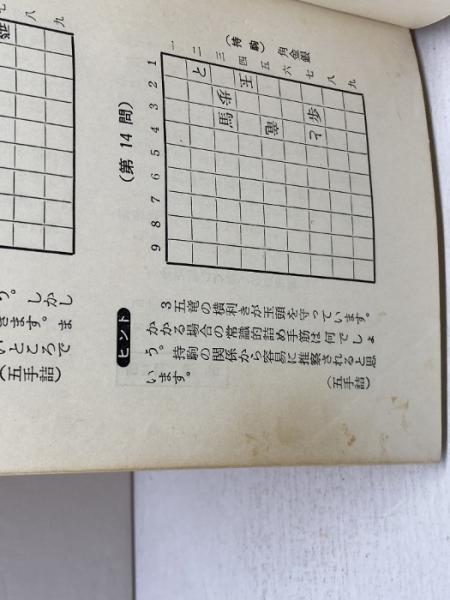 (第 14 問)
9 8 7 6 5 4 3 2 1
と
王
馬
竜
歩
一
二
三
四
五
六
七
八
九
(持駒)
角金銀
ヒント
3五竜の横利きが玉頭を守っています。
かかる場合の常識的詰め手筋は何でしょ
う。持駒の関係から容易に推察されると思
います。
(五手詰)
八
九
う。しかし
きます。ま
いところで
(五手詰)